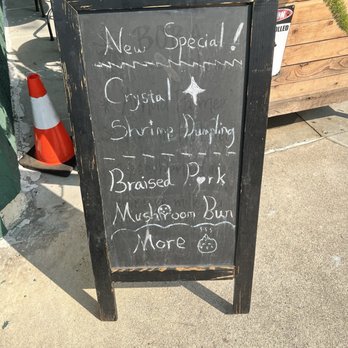 New Special!
Crystal
Shrimp Dumpling
Braised Pork
Mushroom Bun
More